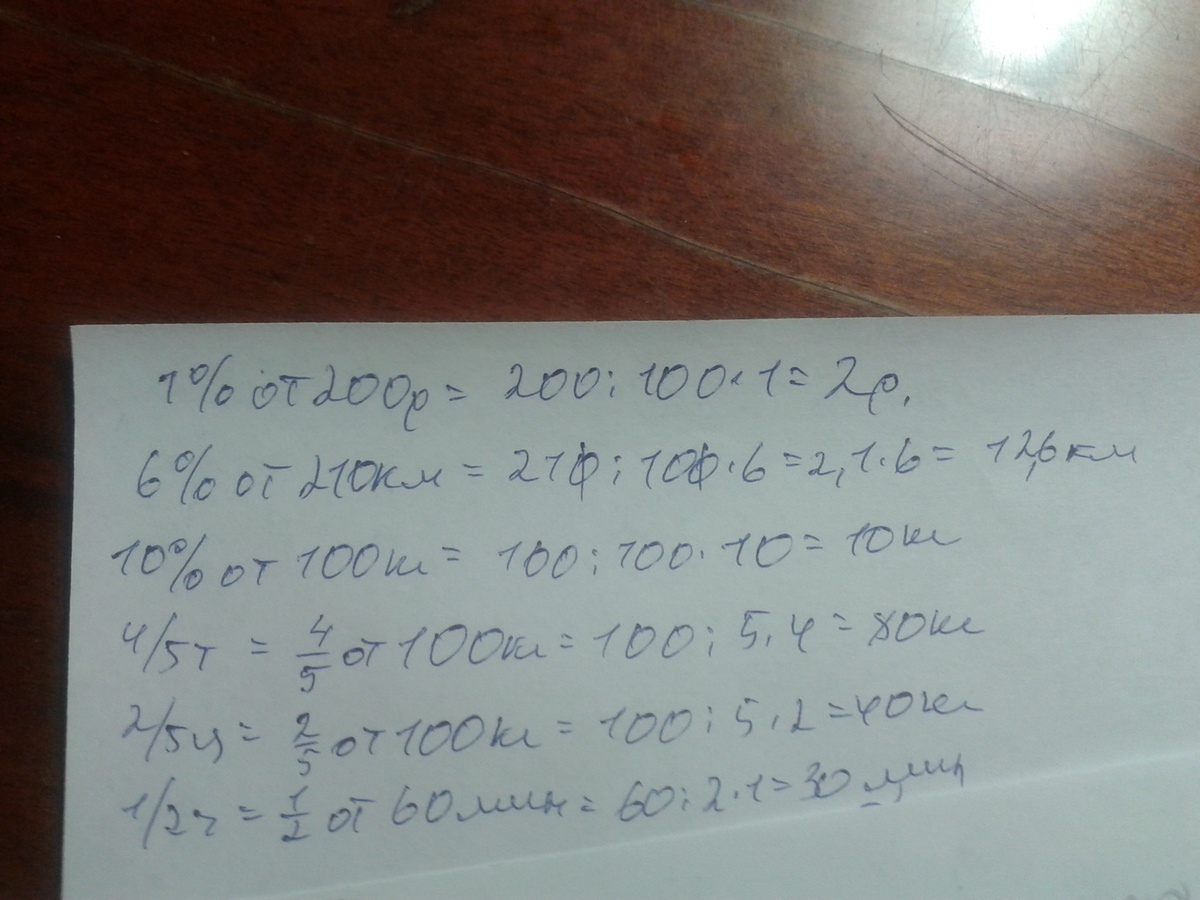 1% от 200р = 200 : 100 · 1 = 2р.
6% от 210км = 210 : 100 · 6 = 2,1 · 6 = 12,6км
10% от 100кг = 100 : 100 · 10 = 10кг
4/5т = 4/5 от 100кг = 100 : 5 · 4 = 80кг
2/5ц = 2/5 от 100кг = 100 : 5 · 2 = 40кг
1/2ч = 1/2 от 60мин = 60 : 2 · 1 = 30 мин